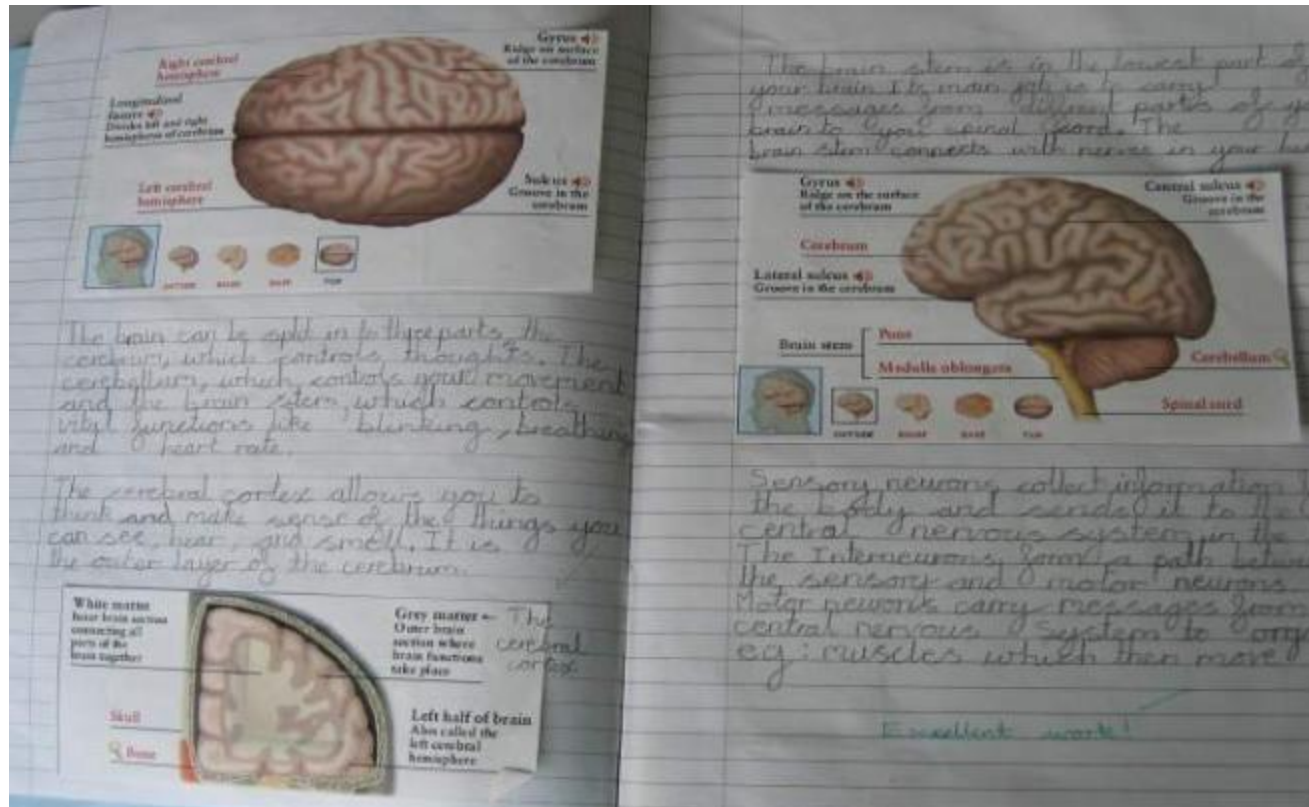 Right cerebral
hemisphere
Gyrus
Ridge on surface
of the cerebrum
Longitudinal
fissure
Divides left and right
hemispheres of cerebrum
Left cerebral
hemisphere
Sulcus
Groove in the
cerebrum
OUTSIDE INSIDE BASE TOP
The brain can be split in to three parts, the
cerebrum, which controls thoughts. The
cerebellum, which controls your movement
and the brain stem, which controls
vital functions like blinking, breathing
and heart rate.
The cerebral cortex allows you to
think and make sense of the things you
can see, hear, and smell. It is
the outer layer of the cerebrum.
White matter
Inner brain section
connecting all
parts of the
brain together
Grey matter ← The
Outer brain cerebral
section where cortex
brain functions
take place
Skull
Bone
Left half of brain
Also called the
left cerebral
hemisphere
The brain stem is in the lowest part of
your brain its main job is to carry
messages from different parts of
brain to your spinal cord. The
brain stem connects with nerves in your
Gyrus
Ridge on the surface
of the cerebrum
Central sulcus
Groove in the
cerebrum
Cerebrum
Lateral sulcus
Groove in the cerebrum
Brain stem
Pons
Medulla oblongata
Cerebellum
Spinal cord
OUTSIDE INSIDE BASE TOP
Sensory neurons collect information
the body and sends it to the
central nervous system in the
The Interneurons form a path
the sensory and motor neurons
Motor neurons carry messages from
central nervous system to
eg: muscles which then move
Excellent work!